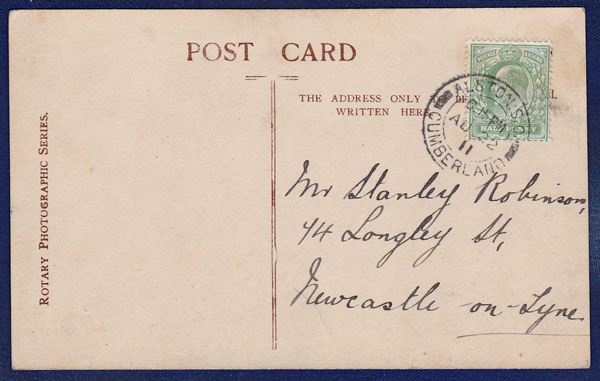 POST CARD
THE ADDRESS ONLY TO BE
WRITTEN HERE
ROTARY PHOTOGRAPHIC SERIES.
ALSTON S.O
PM
AU 22
11
CUMBERLAND
HALF
Mr Stanley Robinson,
44 Longley St,
Newcastle-on-Tyne.